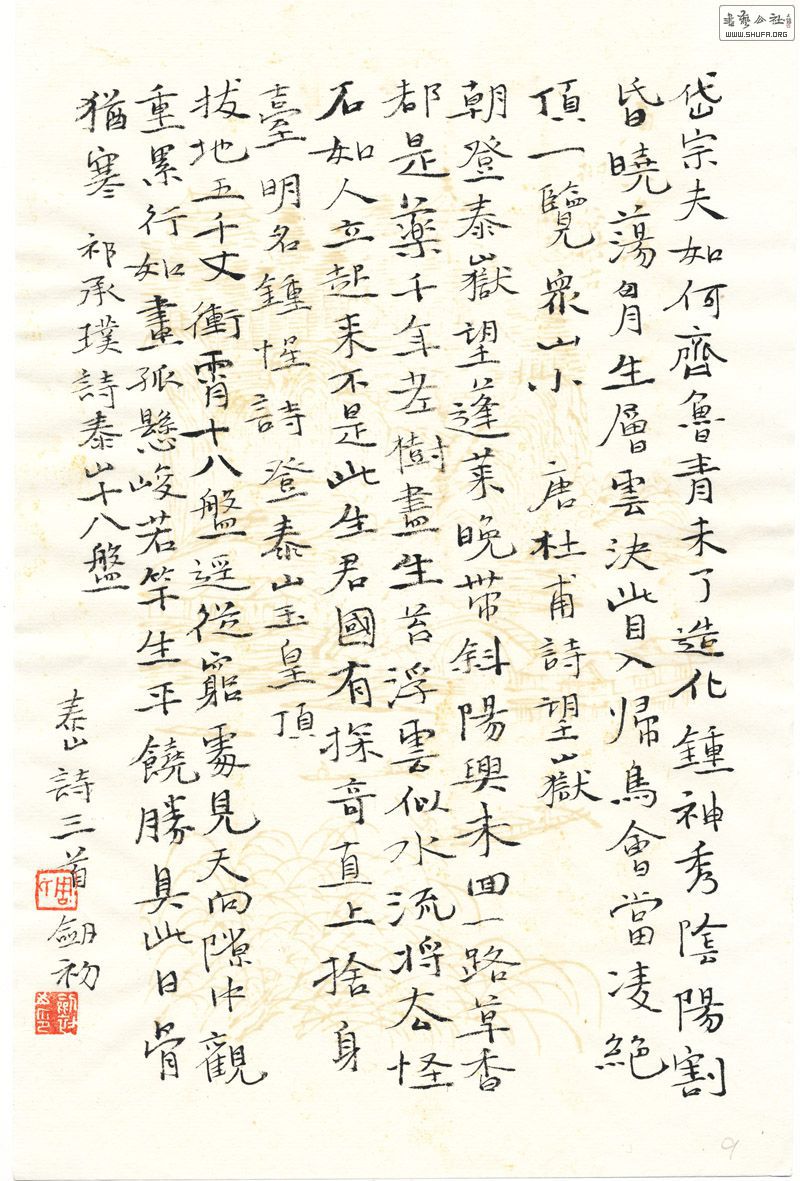 岱宗夫如何齊魯青未了造化鍾神秀陰陽割
昏曉蕩胷生層雲決眥入歸鳥會當凌絕
頂一覽衆山小 唐杜甫詩望嶽
朝登泰嶽望蓬萊晚帶斜陽興未回一路草香
都是藥千年老樹盡生苔浮雲似水流將去怪
石如人立起来不是此生君國有探奇直上捨身
臺明名鍾惺詩登泰山玉皇頂
拔地五千丈衝霄十八盤遥從窮處見天向隙中觀
重累行如畫孤懸峻若竿生平饒勝具此日骨
猶寒 祁承㸁詩泰山十八盤
泰山詩三首
劔初
書藝公社
WWW.SHUFA.ORG
9